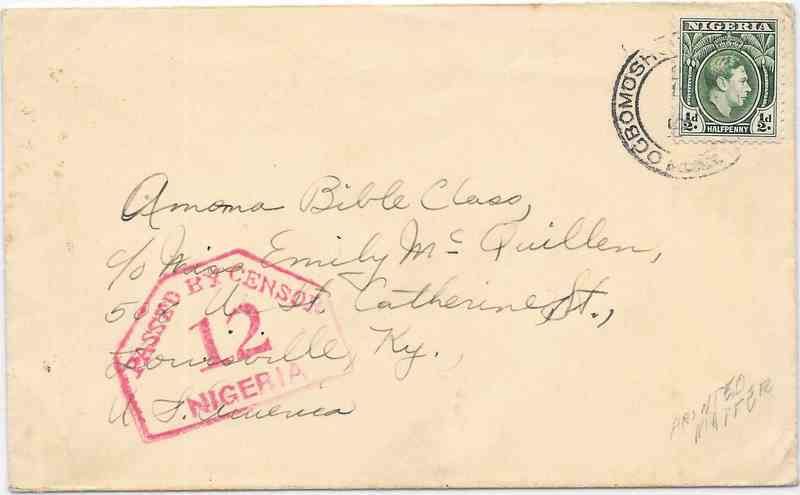 NIGERIA
½d. HALFPENNY ½d.
OGBOMOSHO
Amoma Bible Class,
c/o Miss Emily Mc Quillen,
St. Catherine St.,
Louisville, Ky.,
U. S. America
PASSED BY CENSOR
12
NIGERIA
PRINTED
MATTER